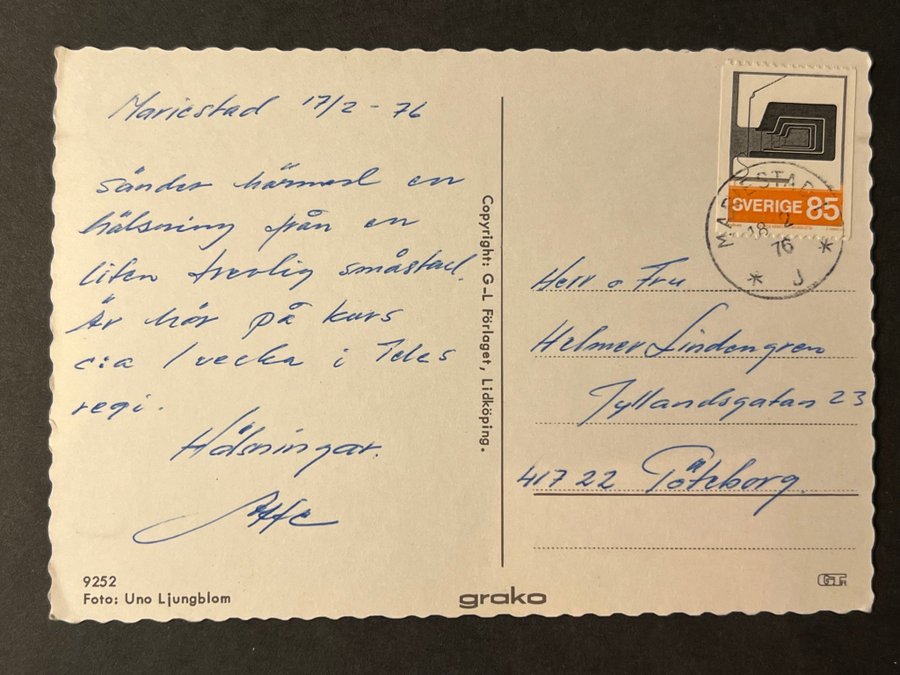 Mariestad 17/2 - 76
Sänder härmed en
hälsning från en
liten trevlig småstad.
Är här på kurs
c:a 1 vecka i Teles
regi.
Hälsningar.
9252
Foto: Uno Ljungblom
Copyright: G-L Förlaget, Lidköping.
grako
SVERIGE 85
MARIESTAD
18 2
76
* J *
Herr o Fru
Helmer Lindengren
Jyllandsgatan 23
417 22 Göteborg.